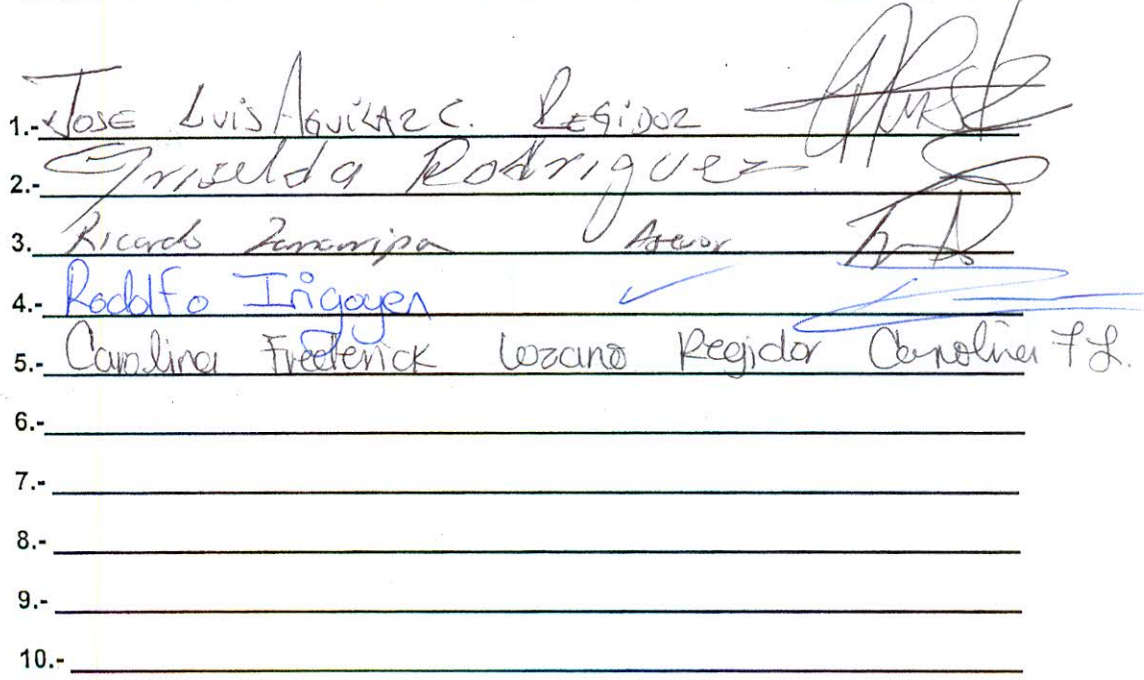 1.- Jose Luis Aguilar C. Regidor
2.- Griselda Rodriguez
3. Ricardo Zamarripa Asesor
4.- Rodolfo Irigoyen ✓
5.- Carolina Frederick Lozano Regidor Carolina F L.
6.-
7.-
8.-
9.-
10.-